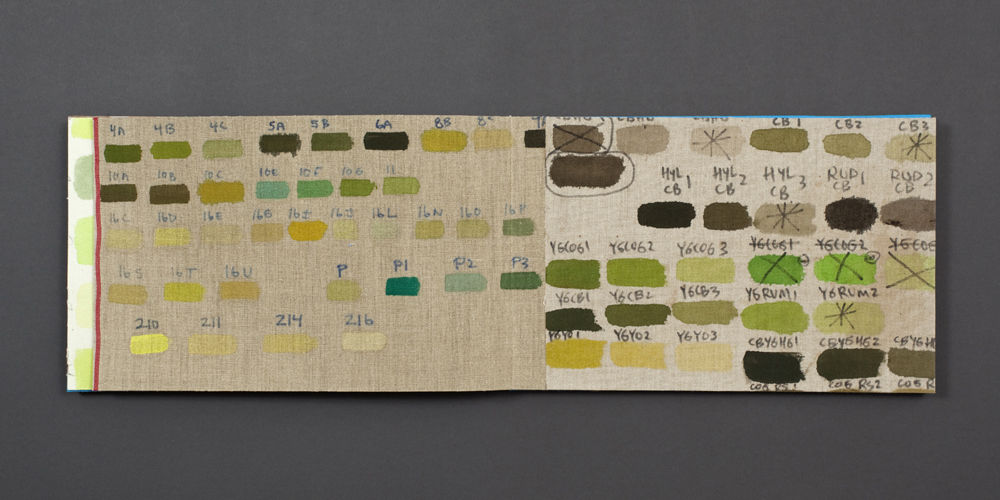 4A 4B 4C 5A 5B 6A 8B 8C
10A 10B 10C 10E 10F 10G 11
16C 16D 16E 16G 16I 16J 16L 16N 16O 16P
16S 16T 16U P P1 P2 P3
210 211 214 216
CB1 CB2 CB3
HYL CB 1 HYL CB 2 HYL CB 3 RUD CB 1 RUD CB 2
YGCOG1 YGCOG2 YGCOG3 YGCOG1 YGCOG2 YGCOG
YGCB1 YGCB2 YGCB3 YGRUM1 YGRUM2
YGYO1 YGYO2 YGYO3 CBYGHG1 CBYGHG2 CBYGH
COB RS1 COB RS2 COB R